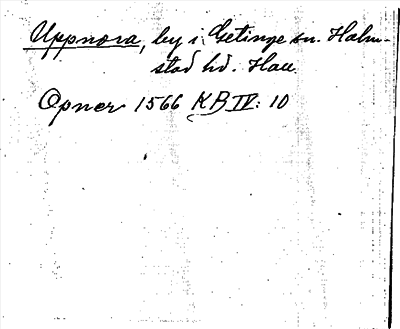 Uppnora, by i Getinge sn. Halm-
stad hd. Hall.
Opner 1566 KB IV: 10